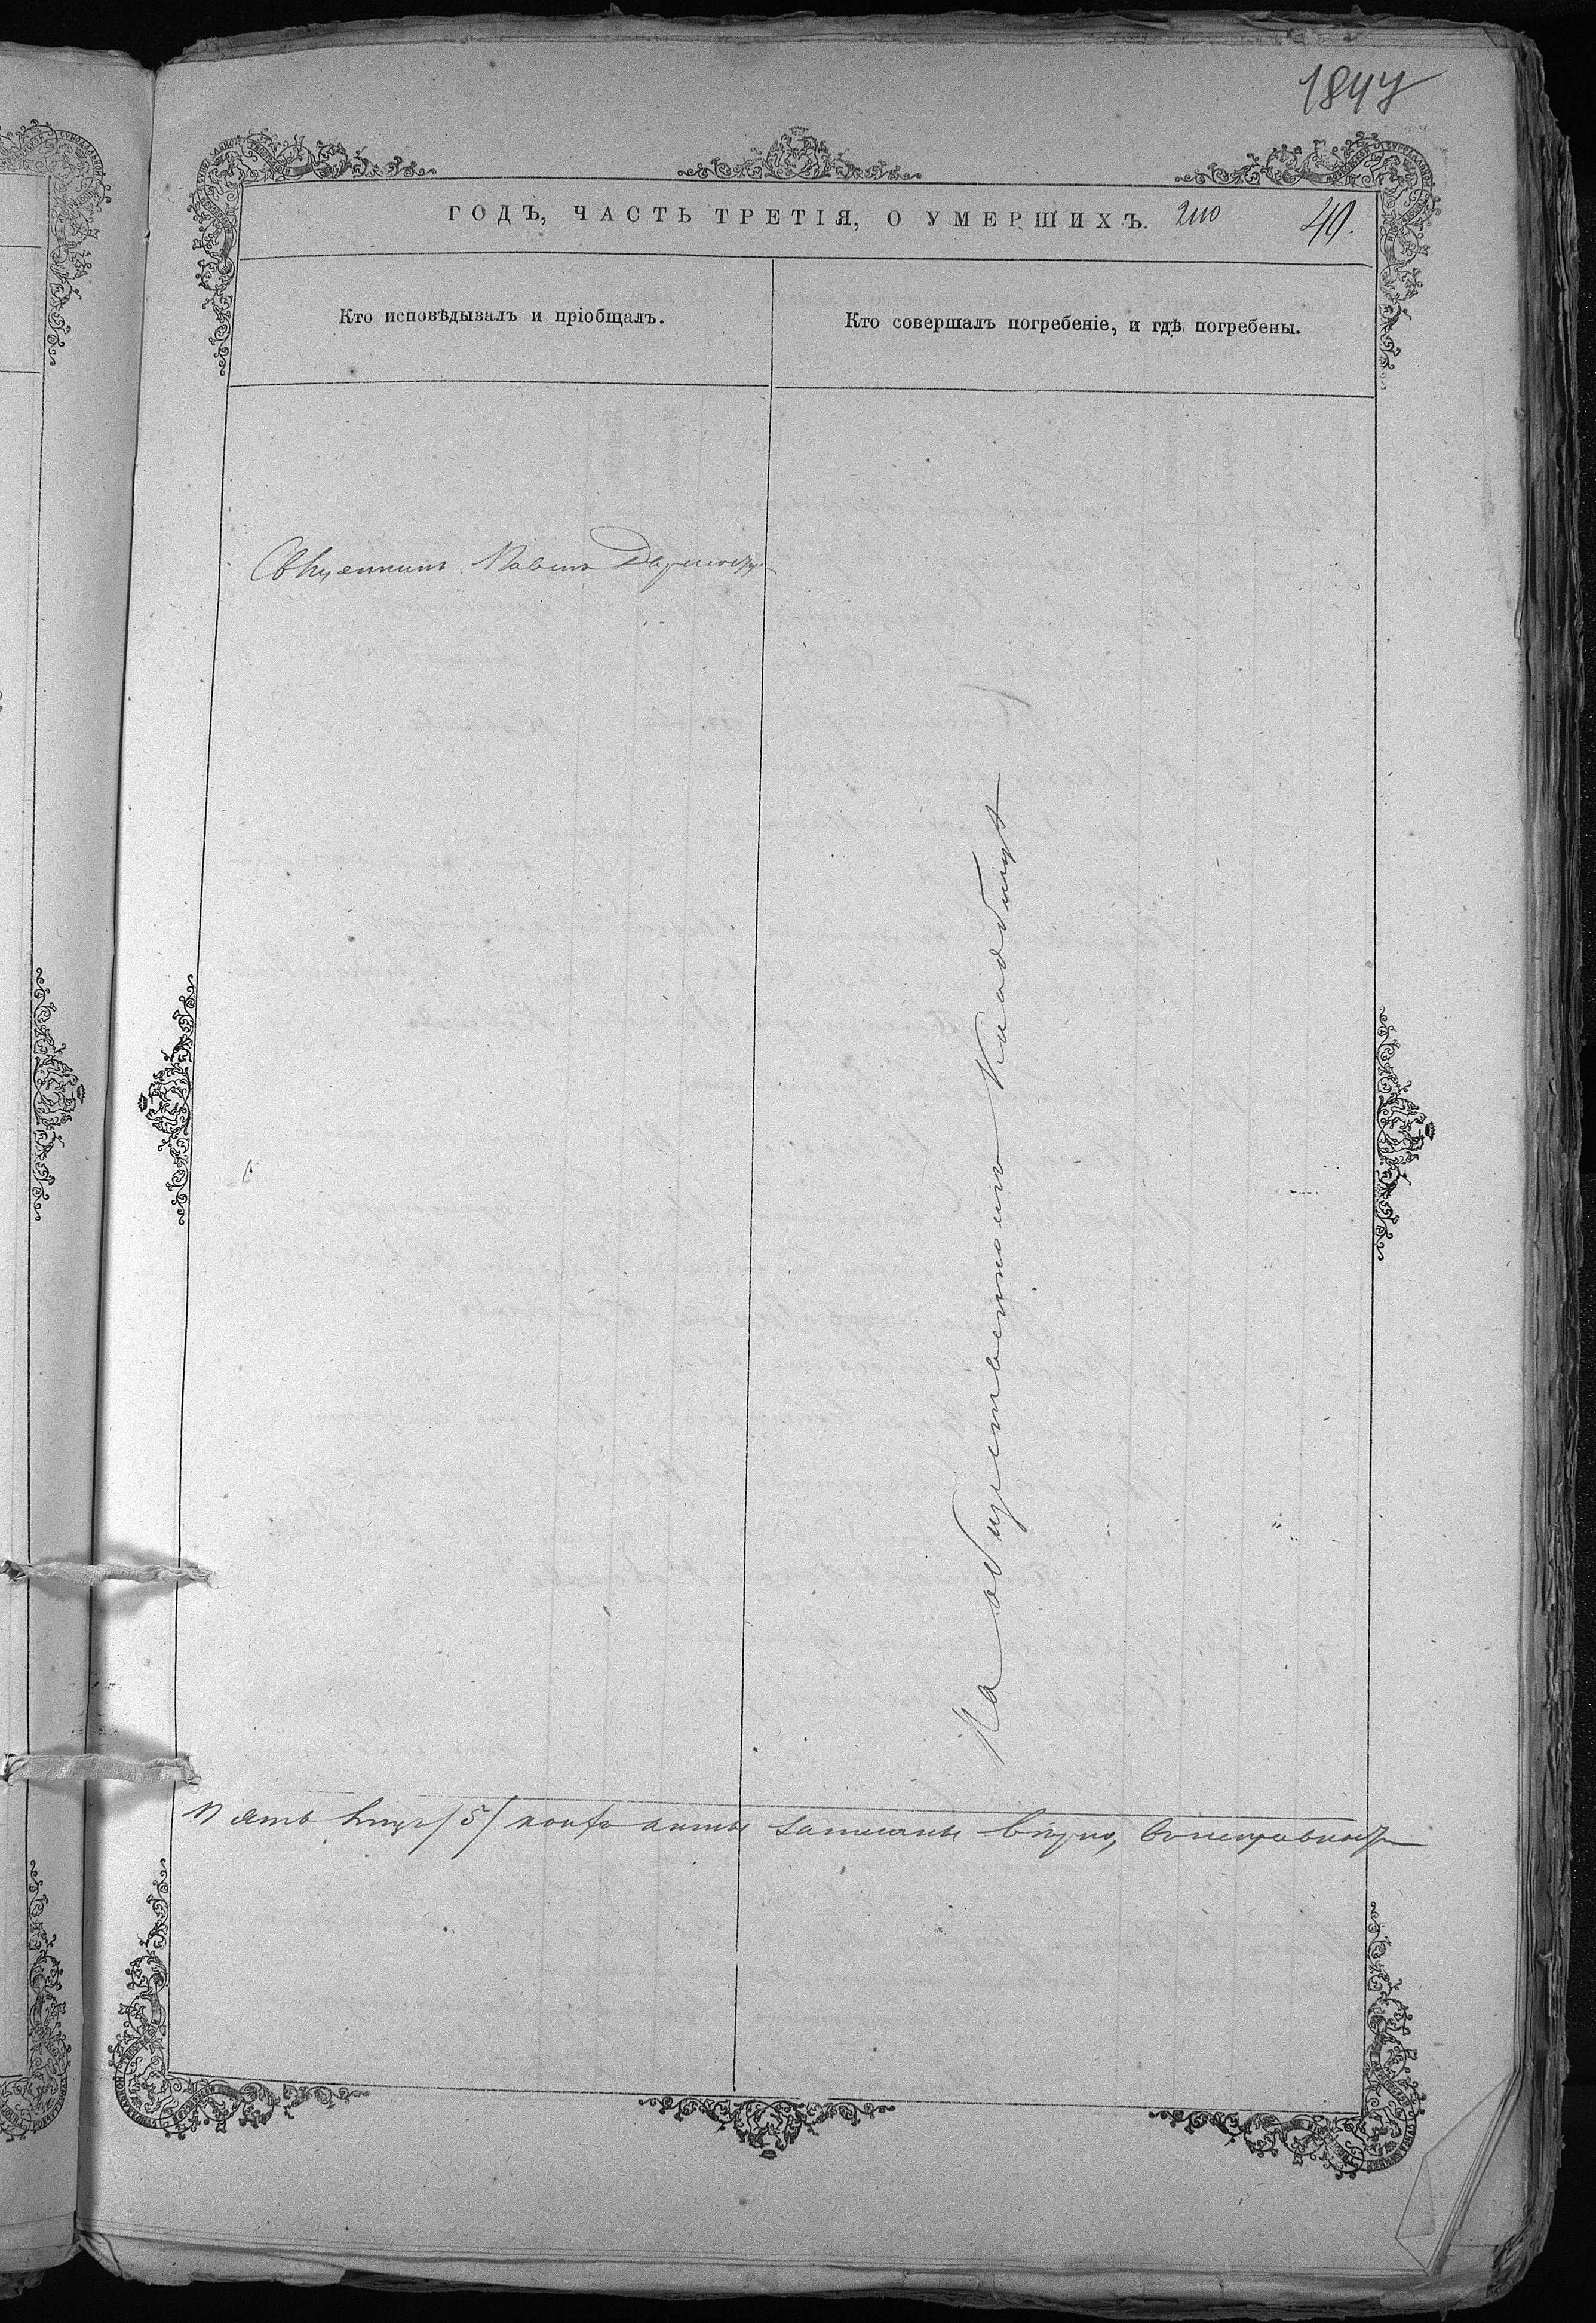 1847
ГОДЪ, ЧАСТЬ ТРЕТІЯ, О УМЕРШИХЪ. 49.
Кто исповѣдывалъ и пріобщалъ.
Кто совершалъ погребеніе, и гдѣ погребены.
Священникъ Павелъ
На общественномъ Кладбищѣ
Пять /5/ записаны вѣрно,